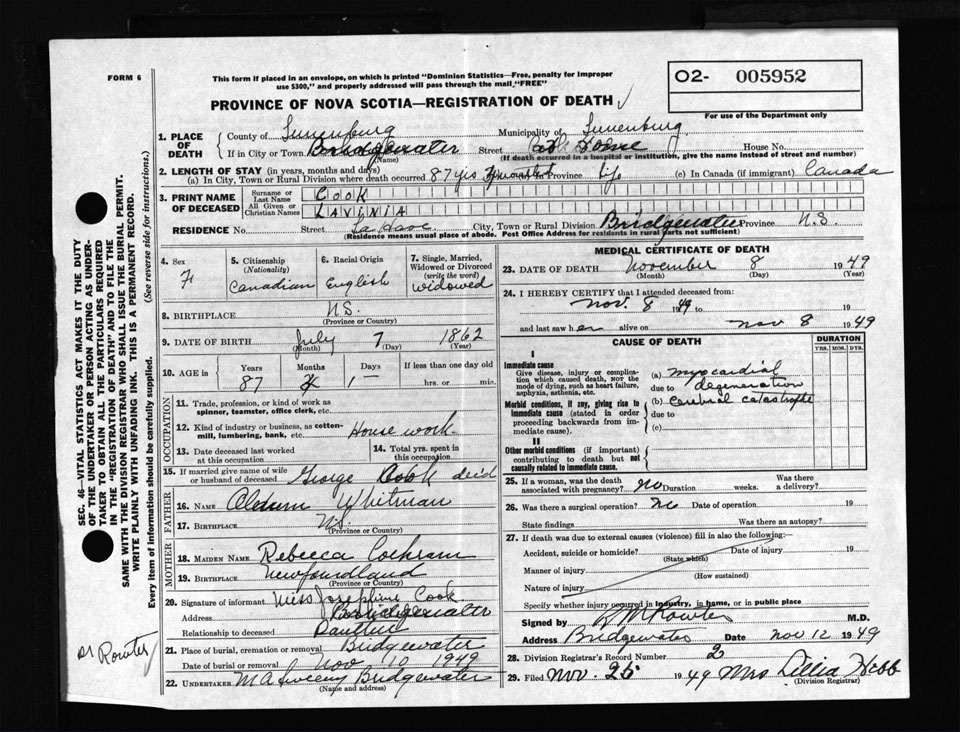 FORM 6
This form if placed in an envelope, on which is printed "Dominion Statistics—Free, penalty for improper
use $300," and properly addressed will pass through the mail, "FREE"
O2- 005952
For use of the Department only
PROVINCE OF NOVA SCOTIA—REGISTRATION OF DEATH
1. PLACE OF DEATH
County of Lunenburg Municipality of Lunenburg
If in City or Town Bridgewater Street at Home House No.
(Name) (If death occurred in a hospital or institution, give the name instead of street and number)
2. LENGTH OF STAY (in years, months and days)
(a) In City, Town or Rural Division where death occurred 87 yrs Province Life (c) In Canada (if immigrant) Canada
3. PRINT NAME OF DECEASED
Surname or Last Name COOK
All Given or Christian Names LAVINIA
RESIDENCE No. Street La Have City, Town or Rural Division Bridgewater Province N.S.
(Residence means usual place of abode. Post Office Address for residents in rural parts not sufficient)
4. Sex F
5. Citizenship (Nationality) Canadian
6. Racial Origin English
7. Single, Married, Widowed or Divorced (write the word) widowed
8. BIRTHPLACE N.S.
(Province or Country)
9. DATE OF BIRTH July 7 1862
(Month) (Day) (Year)
10. AGE in Years Months Days If less than one day old
87 4 1 hrs. or min.
OCCUPATION
11. Trade, profession, or kind of work as spinner, teamster, office clerk, etc.
12. Kind of industry or business, as cotton-mill, lumbering, bank, etc. House work.
13. Date deceased last worked at this occupation
14. Total yrs. spent in this occupation
15. If married give name of wife or husband of deceased George Cook dec'd
FATHER
16. Name Whitman
17. Birthplace N.S.
(Province or Country)
MOTHER
18. Maiden Name Rebecca Cochram
19. Birthplace Newfoundland
(Province or Country)
20. Signature of informant Miss Josephine Cook.
Address Bridgewater
Relationship to deceased
21. Place of burial, cremation or removal Bridgewater
Date of burial or removal Nov 10 1949
22. Undertaker M A Sweeny Bridgewater
(Name and address)
MEDICAL CERTIFICATE OF DEATH
23. DATE OF DEATH November 8 1949
(Month) (Day) (Year)
24. I HEREBY CERTIFY that I attended deceased from:
Nov. 8 1949 to 19
and last saw her alive on Nov 8 1949
CAUSE OF DEATH
DURATION
YRS. MOS. DYS.
I
Immediate cause
Give disease, injury or complication which caused death, NOT the mode of dying, such as heart failure, asphyxia, asthenia, etc.
(a) myocardial
due to degeneration
Morbid conditions, if any, giving rise to immediate cause (stated in order proceeding backwards from immediate cause).
(b) cerebral catastrophe
due to
(c)
II
Other morbid conditions (if important) contributing to death but not causally related to immediate cause.
25. If a woman, was the death associated with pregnancy? no Duration weeks. Was there a delivery?
26. Was there a surgical operation? no Date of operation 19
State findings Was there an autopsy?
27. If death was due to external causes (violence) fill in also the following:
Accident, suicide or homicide? Date of injury 19
(State which)
Manner of injury
(How sustained)
Nature of injury
Specify whether injury occurred in industry, in home, or in public place
Signed by M.D.
Address Bridgewater Date Nov 12 1949
28. Division Registrar's Record Number 2
29. Filed Nov. 26 1949 Mrs Lillia Hebb
(Division Registrar)
SEC. 46—VITAL STATISTICS ACT MAKES IT THE DUTY
OF THE UNDERTAKER OR PERSON ACTING AS UNDER-
TAKER TO OBTAIN ALL THE PARTICULARS REQUIRED
IN THE "REGISTRATION OF DEATH" AND TO FILE THE
SAME WITH THE DIVISION REGISTRAR WHO SHALL ISSUE THE BURIAL PERMIT.
WRITE PLAINLY WITH UNFADING INK. THIS IS A PERMANENT RECORD.
Every item of information should be carefully supplied. (See reverse side for instructions.)